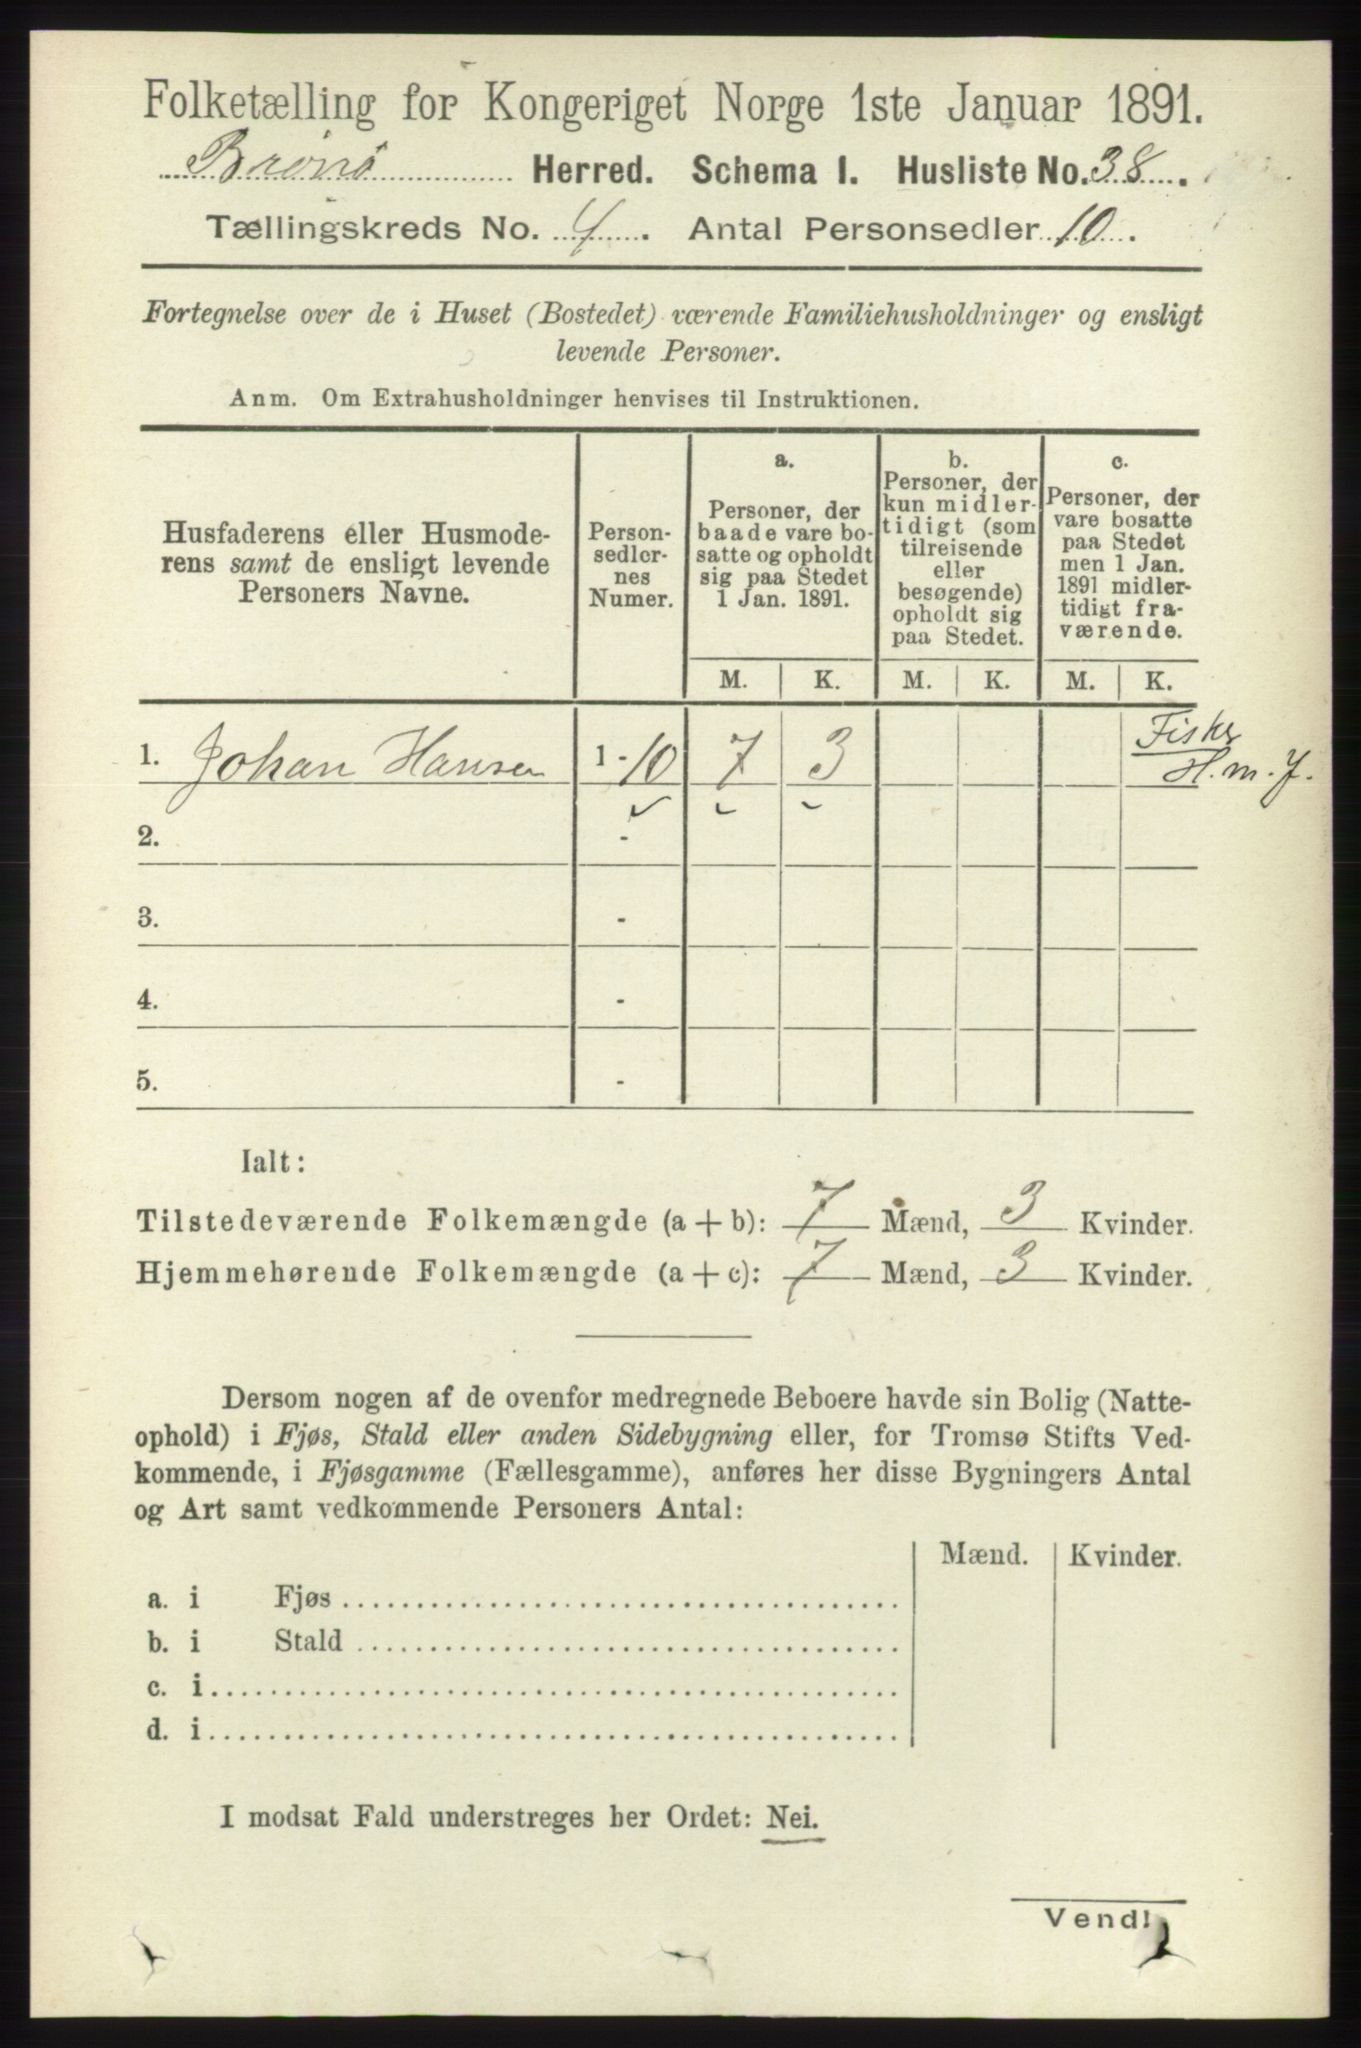 Folketælling for Kongeriget Norge 1ste Januar 1891.
Brønø Herred. Schema I. Husliste No. 38.
Tællingskreds No. 4. Antal Personsedler 10.
Fortegnelse over de i Huset (Bostedet) værende Familiehusholdninger og ensligt
levende Personer.
Anm. Om Extrahusholdninger henvises til Instruktionen.
Husfaderens eller Husmode-
rens samt de ensligt levende
Personers Navne.
Person-
sedler-
nes
Numer.
a.
Personer, der
baade vare bo-
satte og opholdt
sig paa Stedet
1 Jan. 1891.
b.
Personer, der
kun midler-
tidigt (som
tilreisende
eller
besøgende)
opholdt sig
paa Stedet.
c.
Personer, der
vare bosatte
paa Stedet
men 1 Jan.
1891 midler-
tidigt fra-
værende.
M. K. M. K. M. K.
1. Johan Hansen 1 - 10 7 3 Fisker
H. m. J.
2. -
3. -
4. -
5. -
Ialt:
Tilstedeværende Folkemængde (a + b): 7 Mænd, 3 Kvinder.
Hjemmehørende Folkemængde (a + c): 7 Mænd, 3 Kvinder.
Dersom nogen af de ovenfor medregnede Beboere havde sin Bolig (Natte-
ophold) i Fjøs, Stald eller anden Sidebygning eller, for Tromsø Stifts Ved-
kommende, i Fjøsgamme (Fællesgamme), anføres her disse Bygningers Antal
og Art samt vedkommende Personers Antal:
Mænd. Kvinder.
a. i Fjøs
b. i Stald
c. i
d. i
I modsat Fald understreges her Ordet: Nei.
Vend!